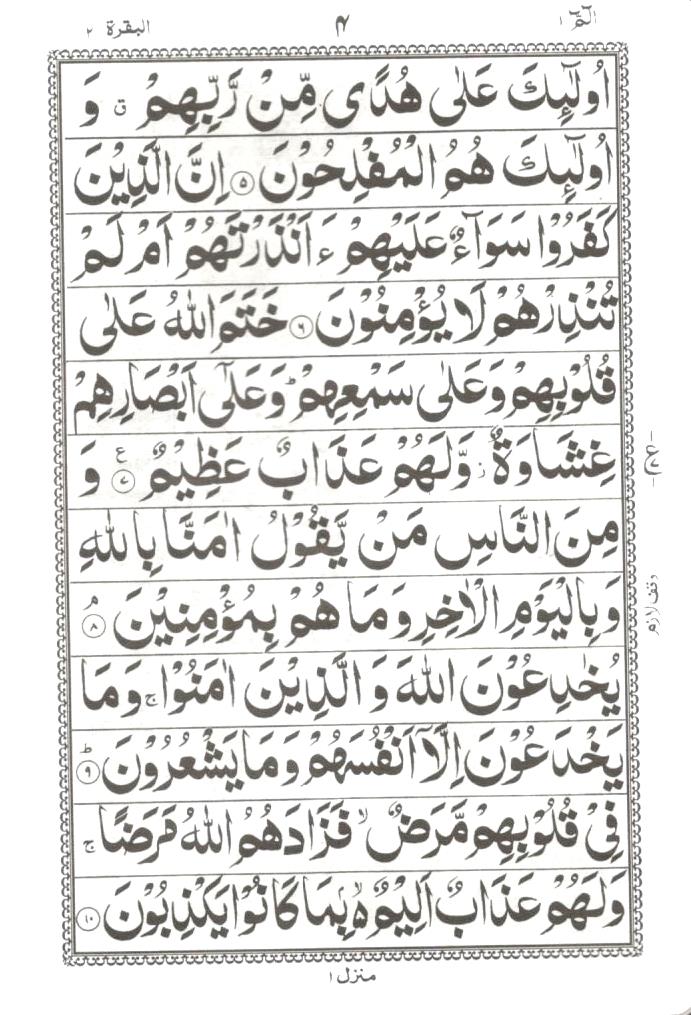 الٓمّٓ ۱ ۴ البقرة ۲
اُولٰٓئِكَ عَلٰى هُدًى مِّنْ رَّبِّهِمْ ۙق وَ
اُولٰٓئِكَ هُمُ الْمُفْلِحُوْنَ ۵ اِنَّ الَّذِيْنَ
كَفَرُوْا سَوَآءٌ عَلَيْهِمْ ءَاَنْذَرْتَهُمْ اَمْ لَمْ
تُنْذِرْهُمْ لَا يُؤْمِنُوْنَ ۶ خَتَمَ اللّٰهُ عَلٰى
قُلُوْبِهِمْ وَعَلٰى سَمْعِهِمْ ؕ وَعَلٰٓى اَبْصَارِهِمْ
غِشَاوَةٌ ز وَّلَهُمْ عَذَابٌ عَظِيْمٌ ۷ ع وَ
ع
مِنَ النَّاسِ مَنْ يَّقُوْلُ اٰمَنَّا بِاللّٰهِ
وَبِالْيَوْمِ الْاٰخِرِ وَمَا هُمْ بِمُؤْمِنِيْنَ ۘ ۸
وقف لازم
يُخٰدِعُوْنَ اللّٰهَ وَ الَّذِيْنَ اٰمَنُوْا ج وَمَا
يَخْدَعُوْنَ اِلَّآ اَنْفُسَهُمْ وَمَا يَشْعُرُوْنَ ؕ ۹
فِيْ قُلُوْبِهِمْ مَّرَضٌ ۙ فَزَادَهُمُ اللّٰهُ مَرَضًا ج
وَلَهُمْ عَذَابٌ اَلِيْمٌۢ ۙ بِمَا كَانُوْا يَكْذِبُوْنَ ۱۰
منزل ۱